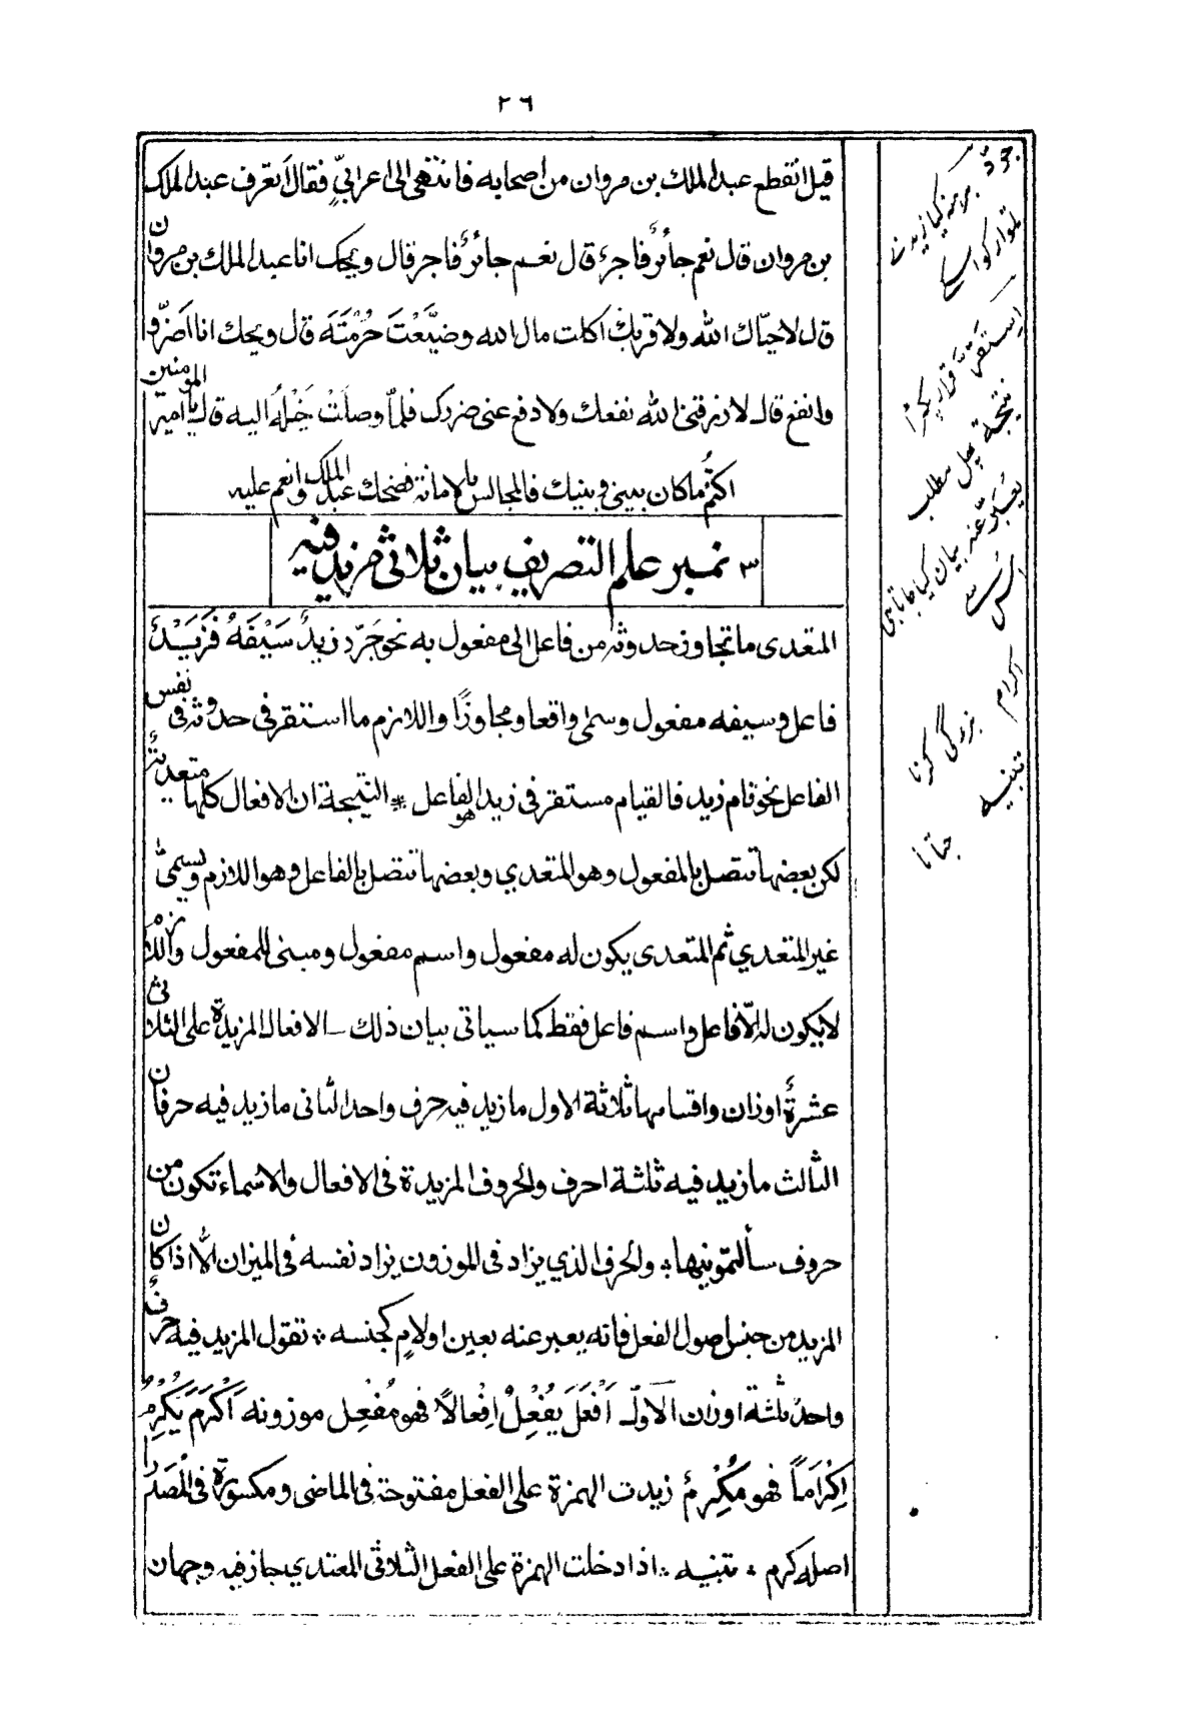 ٢٦
قيل انقطع عبد الملك بن مروان من اصحابه فانتهى الى اعرابيٍّ فقال أتعرف عبد الملك
بن مروان قال نعم جائرٌ فاجرٌ قال نعم جائرٌ فاجر قال ويحك انا عبد الملك بن مروان
قال لا حيّاك الله ولا قربك اكلت مال الله وضيَّعْتَ حُرْمَتَهَ قال ويحك انا اضرّ
وانفع قال لا رزقنى الله نفعك ولا دفع عنى ضررك فلمّا وصلَتْ خَيْلُهُ اليه قال يا امير المومنين
اكتُمْ ما كان بينى وبينك فالمجالس بالامانة فضحك عبد الملك وانعم عليه
٣ نمبر علم التصريف بيان ثلاثى مزيد فيه
المتعدى ما تجاوز حدوثه من فاعل الى مفعول به نحو جَرّد زيدٌ سَيْفَهُ فَزَيْدٌ
فاعل وسيفه مفعول وسمى واقعا ومجاوزًا واللازم ما استقر فى حدوثه فى نفس
الفاعل نحو قام زيد فالقيام مستقر فى زيد هو الفاعل * النتيجة ان الافعال كلها متعديةٌ
لكن بعضها تتصل بالمفعول وهو المتعدي وبعضها تتصل بالفاعل وهو اللازم ويسمىٰ
غير المتعدي ثم المتعدى يكون له مفعول واسم مفعول ومبنى للمفعول واللازم
لا يكون له الّا فاعل واسم فاعل فقط كما سياتى بيان ذلك ــ الافعال المزيدة على الثلاثى
عشرةُ اوزان واقسامها ثلاثة الاول ما زيد فيه حرف واحد الثانى ما زيد فيه حرفان
الثالث ما زيد فيه ثلثة احرف والحروف المزيدة فى الافعال والاسماء تكون من
حروف سألتمونيها * والحرف الذي يزاد فى الموزون يزاد نفسه فى الميزان الّا اذا كان
المزيد من جنس اصول الفعل فانه يعبر عنه بعين او لامٍ كجنسه * تقول المزيد فيه حرفٌ
واحدٌ ثلثة اوزان الاوّل اَفْعَلَ يُفْعِلُ اِفْعالاً فهو مُفْعِل موزونه اَكْرَمَ يُكْرِمُ
اِكْرَاماً فهو مُكْرِمٌ زيدت الهمزة على الفعل مفتوحة فى الماضى ومكسورة فى المَصْدر
اصله كرم * تنبيه * اذا دخلت الهمزة على الفعل الثلاثى المعتدي جاز فيه وجهان
جرّد
برہنہ کیا زید نے
تلوار کو اسے
استقرّ قرار پکڑا
نتیجة پھل مطلب
يُعبّر عنه بیان کیا جاتا ہی
اس سے
اکرام
بزرگی کرنا
تنبیہ
جتانا